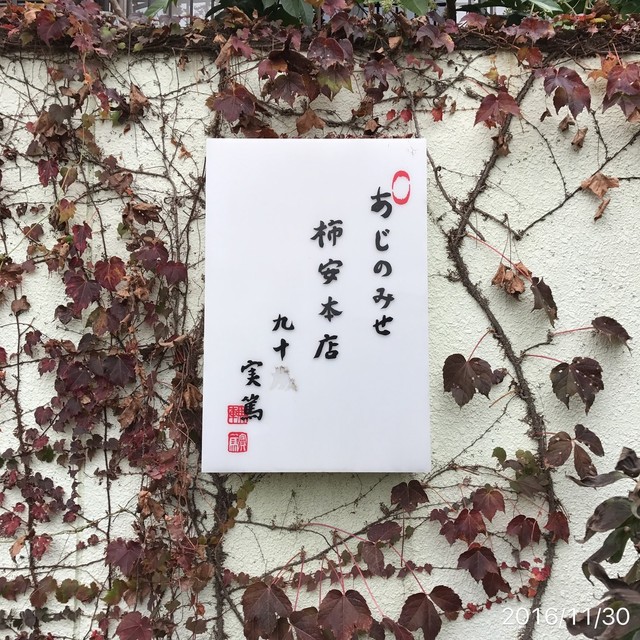 あじのみせ
柿安本店
九十
実篤
2016/11/30